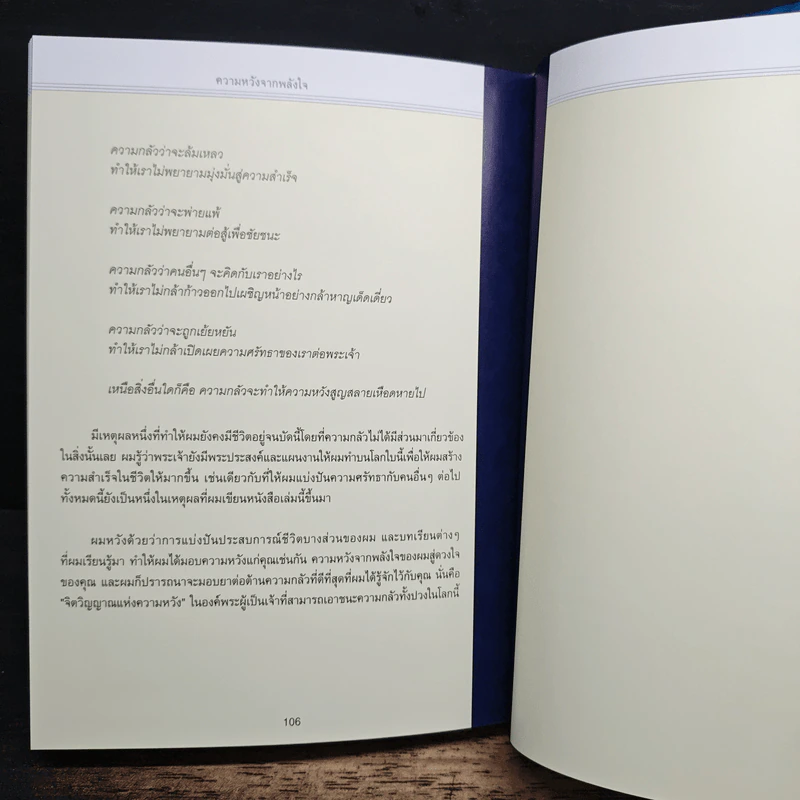 ความหวังจากพลังใจ
ความกลัวว่าจะล้มเหลว
ทำให้เราไม่พยายามมุ่งมั่นสู่ความสำเร็จ
ความกลัวว่าจะพ่ายแพ้
ทำให้เราไม่พยายามต่อสู้เพื่อชัยชนะ
ความกลัวว่าคนอื่นๆ จะคิดกับเราอย่างไร
ทำให้เราไม่กล้าก้าวออกไปเผชิญหน้าอย่างกล้าหาญเด็ดเดี่ยว
ความกลัวว่าจะถูกเย้ยหยัน
ทำให้เราไม่กล้าเปิดเผยความศรัทธาของเราต่อพระเจ้า
เหนือสิ่งอื่นใดก็คือ ความกลัวจะทำให้ความหวังสูญสลายเหือดหายไป
มีเหตุผลหนึ่งที่ทำให้ผมยังคงมีชีวิตอยู่จนบัดนี้โดยที่ความกลัวไม่ได้มีส่วนมาเกี่ยวข้อง
ในสิ่งนั้นเลย ผมรู้ว่าพระเจ้ายังมีพระประสงค์และแผนงานให้ผมทำบนโลกใบนี้เพื่อให้ผมสร้าง
ความสำเร็จในชีวิตให้มากขึ้น เช่นเดียวกับที่ให้ผมแบ่งปันความศรัทธากับคนอื่นๆ ต่อไป
ทั้งหมดนี้ยังเป็นหนึ่งในเหตุผลที่ผมเขียนหนังสือเล่มนี้ขึ้นมา
ผมหวังด้วยว่าการแบ่งปันประสบการณ์ชีวิตบางส่วนของผม และบทเรียนต่างๆ
ที่ผมเรียนรู้มา ทำให้ผมได้มอบความหวังแก่คุณเช่นกัน ความหวังจากพลังใจของผมสู่ดวงใจ
ของคุณ และผมก็ปรารถนาจะมอบยาต่อต้านความกลัวที่ดีที่สุดที่ผมได้รู้จักไว้กับคุณ นั่นคือ
"จิตวิญญาณแห่งความหวัง" ในองค์พระผู้เป็นเจ้าที่สามารถเอาชนะความกลัวทั้งปวงในโลกนี้
106